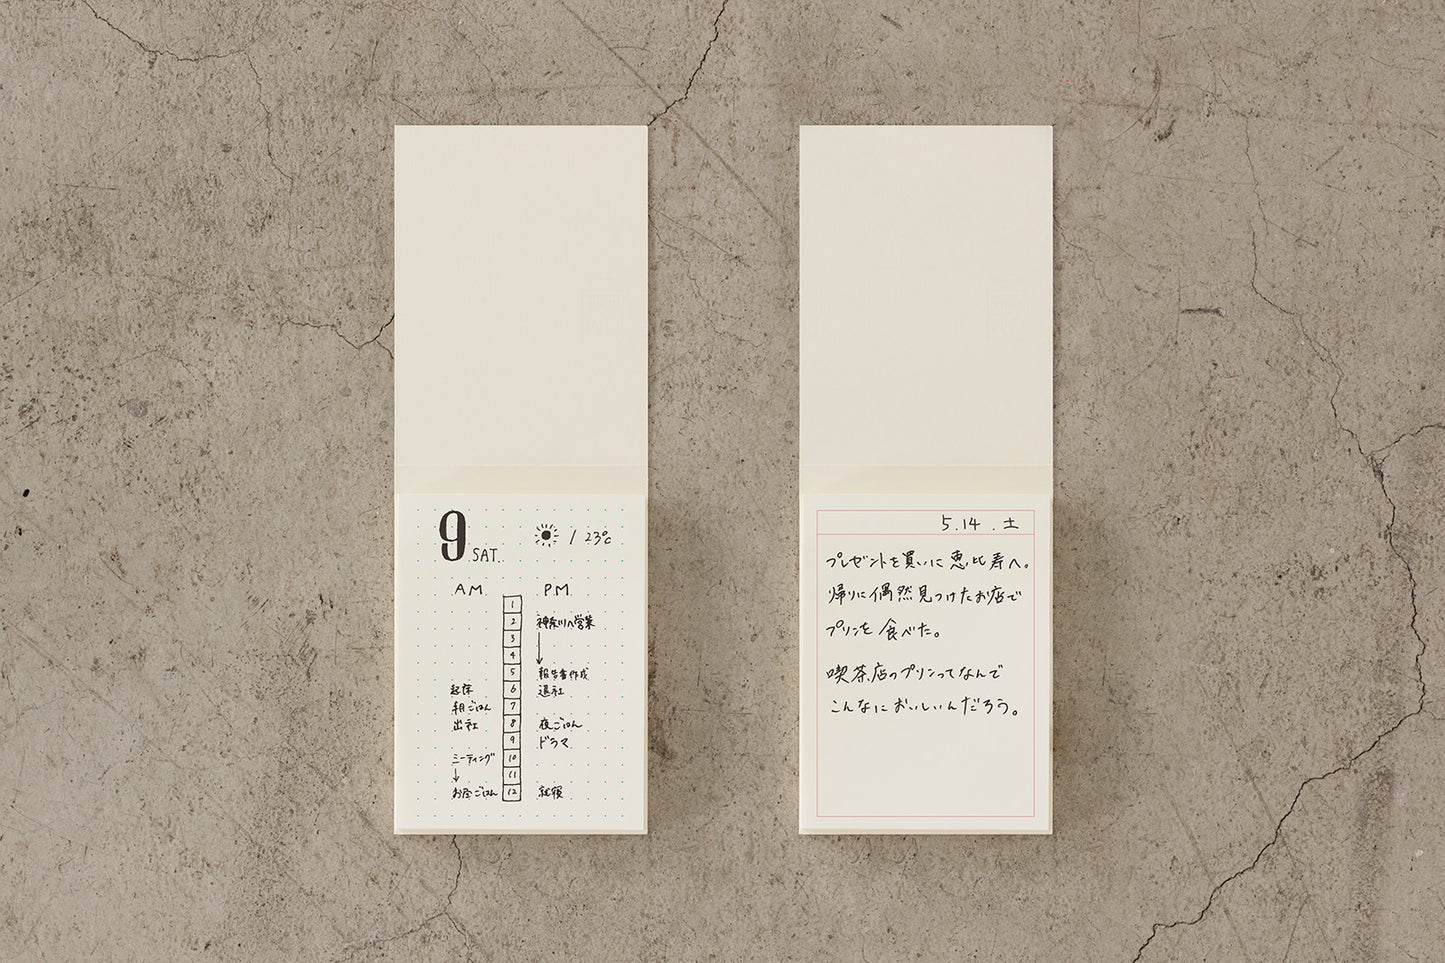 9 SAT. / 23℃
AM. PM.
1
2 神奈川へ営業
3
4
5 報告書作成
起床 6 退社
朝ごはん 7
出社 8 夜ごはん
9 ドラマ
ミーティング 10
11
お昼ごはん 12 就寝
5.14.土
プレゼントを買いに恵比寿へ。
帰りに偶然見つけたお店で
プリンを食べた。
喫茶店のプリンってなんで
こんなにおいしいんだろう。